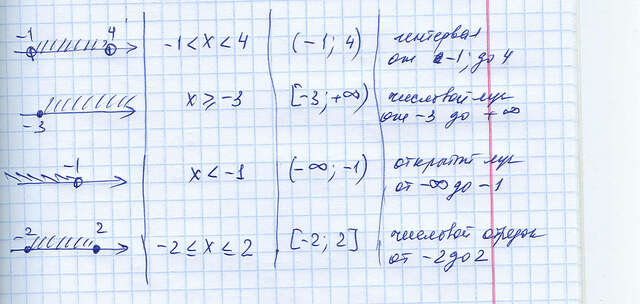 -1 4 -1 < x < 4 (-1; 4) интервал
от -1; до 4
-3 x ≥ -3 [-3; +∞) числовой луч
от -3 до +∞
-1 x < -1 (-∞; -1) открытый луч
от -∞ до -1
-2 2 -2 ≤ x ≤ 2 [-2; 2] числовой отрезок
от -2 до 2